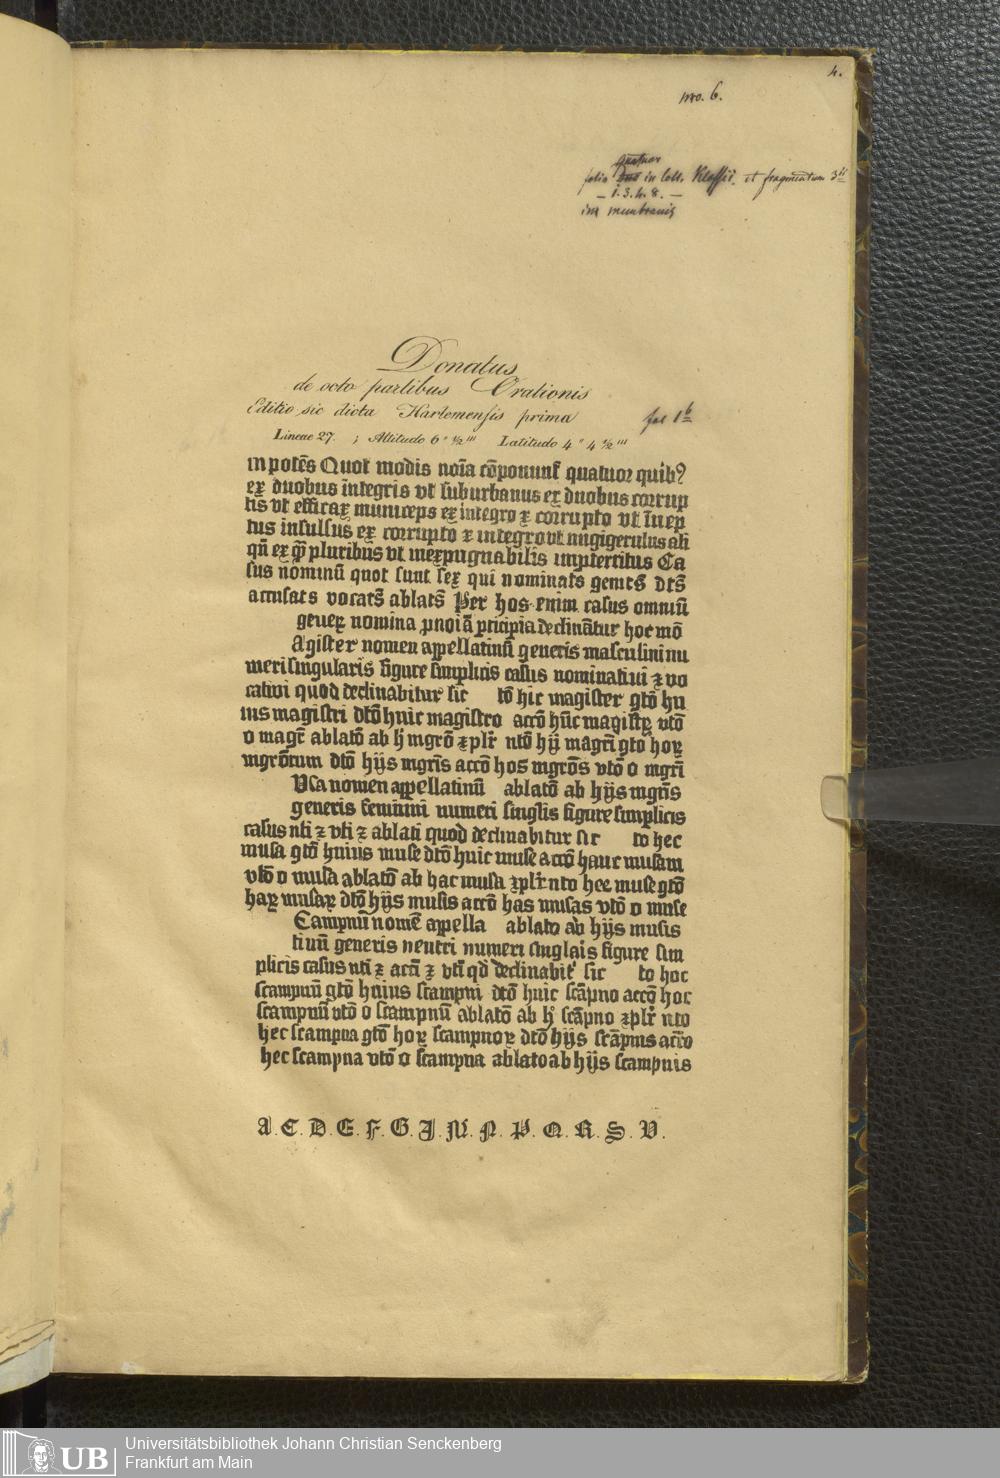 4.
nro. 6.
quatuor
folia in Coll. Klossii. et fragmentum 3tii
– 1. 3. 4. 8. –
in membranis
Donatus
de octo partibus Orationis
Editio sic dicta Harlemensis prima
fol 1b
Lineae 27. ; Altitudo 6" ½''' Latitudo 4" 4 ½'''
m potēs Quot modis noīa cōponunt᷑ quatuor quib?
eꝝ duobus integris vt suburbanus ex duobus corrup
tis vt efficax municeps ex integro ꝛ corrupto vt īnep
tus insulsus ex corrupto ꝛ integro vt nugigerulus ali
qn̄ ex pluribus vt inexpugnabilis imperterritus Ca
sus nominū quot sunt sex qui nominatꝰ genitꝰ dtꝰ
accusatꝰ vocatꝰ ablatꝰ Per hos enim casus omniū
generꝝ nomina pnoīa pticipia declinātur hoc mō
Agister nomen appellatiuū generis masculini nu
meri singularis figure simplicis casus nominatiui ꝛ vo
catiui quod declinabitur sic tō hic magister gtō hu
ius magistri dtō huic magistro accō hūc magistꝝ vtō
o magr̄ ablatō ab h̾ mgrō ꝛ plr̄ ntō hij magr̄i gto hoꝝ
mgrōrum dtō hijs mgrīs accō hos mgrōs vtō o mgr̄i
Vsa nomen appellatiuū ablatō ab hijs mgrīs
generis feminini numeri singl̄is figure simplicis
casus nti ꝛ vti ꝛ ablati quod declinabitur sic to hec
musa gtō huius muse dtō huic muse accō hanc musam
vtō o musa ablatō ab hac musa ꝛ plr̄ nto hee muse gtō
haꝝ musaꝝ dtō hijs musis accō has musas vtō o muse
Campnū nomē appella ablato ab hijs musis
tiuū generis neutri numeri singlaris figure sim
plicis casus nti ꝛ acti ꝛ vti qd declinabit᷑ sic to hoc
scampnū gtō huius scampni dtō huic scāpno accō hoc
scampnū vtō o scampnū ablatō ab h̾ scāpno ꝛ plr̄ nto
hec scampna gtō hoꝝ scampnoꝝ dtō hijs scāpnis accō
hec scampna vtō o scampna ablato ab hijs scampnis
A. C. D. E. F. G. I. M. N. P. Q. R. S. V.
UB
Universitätsbibliothek Johann Christian Senckenberg
Frankfurt am Main